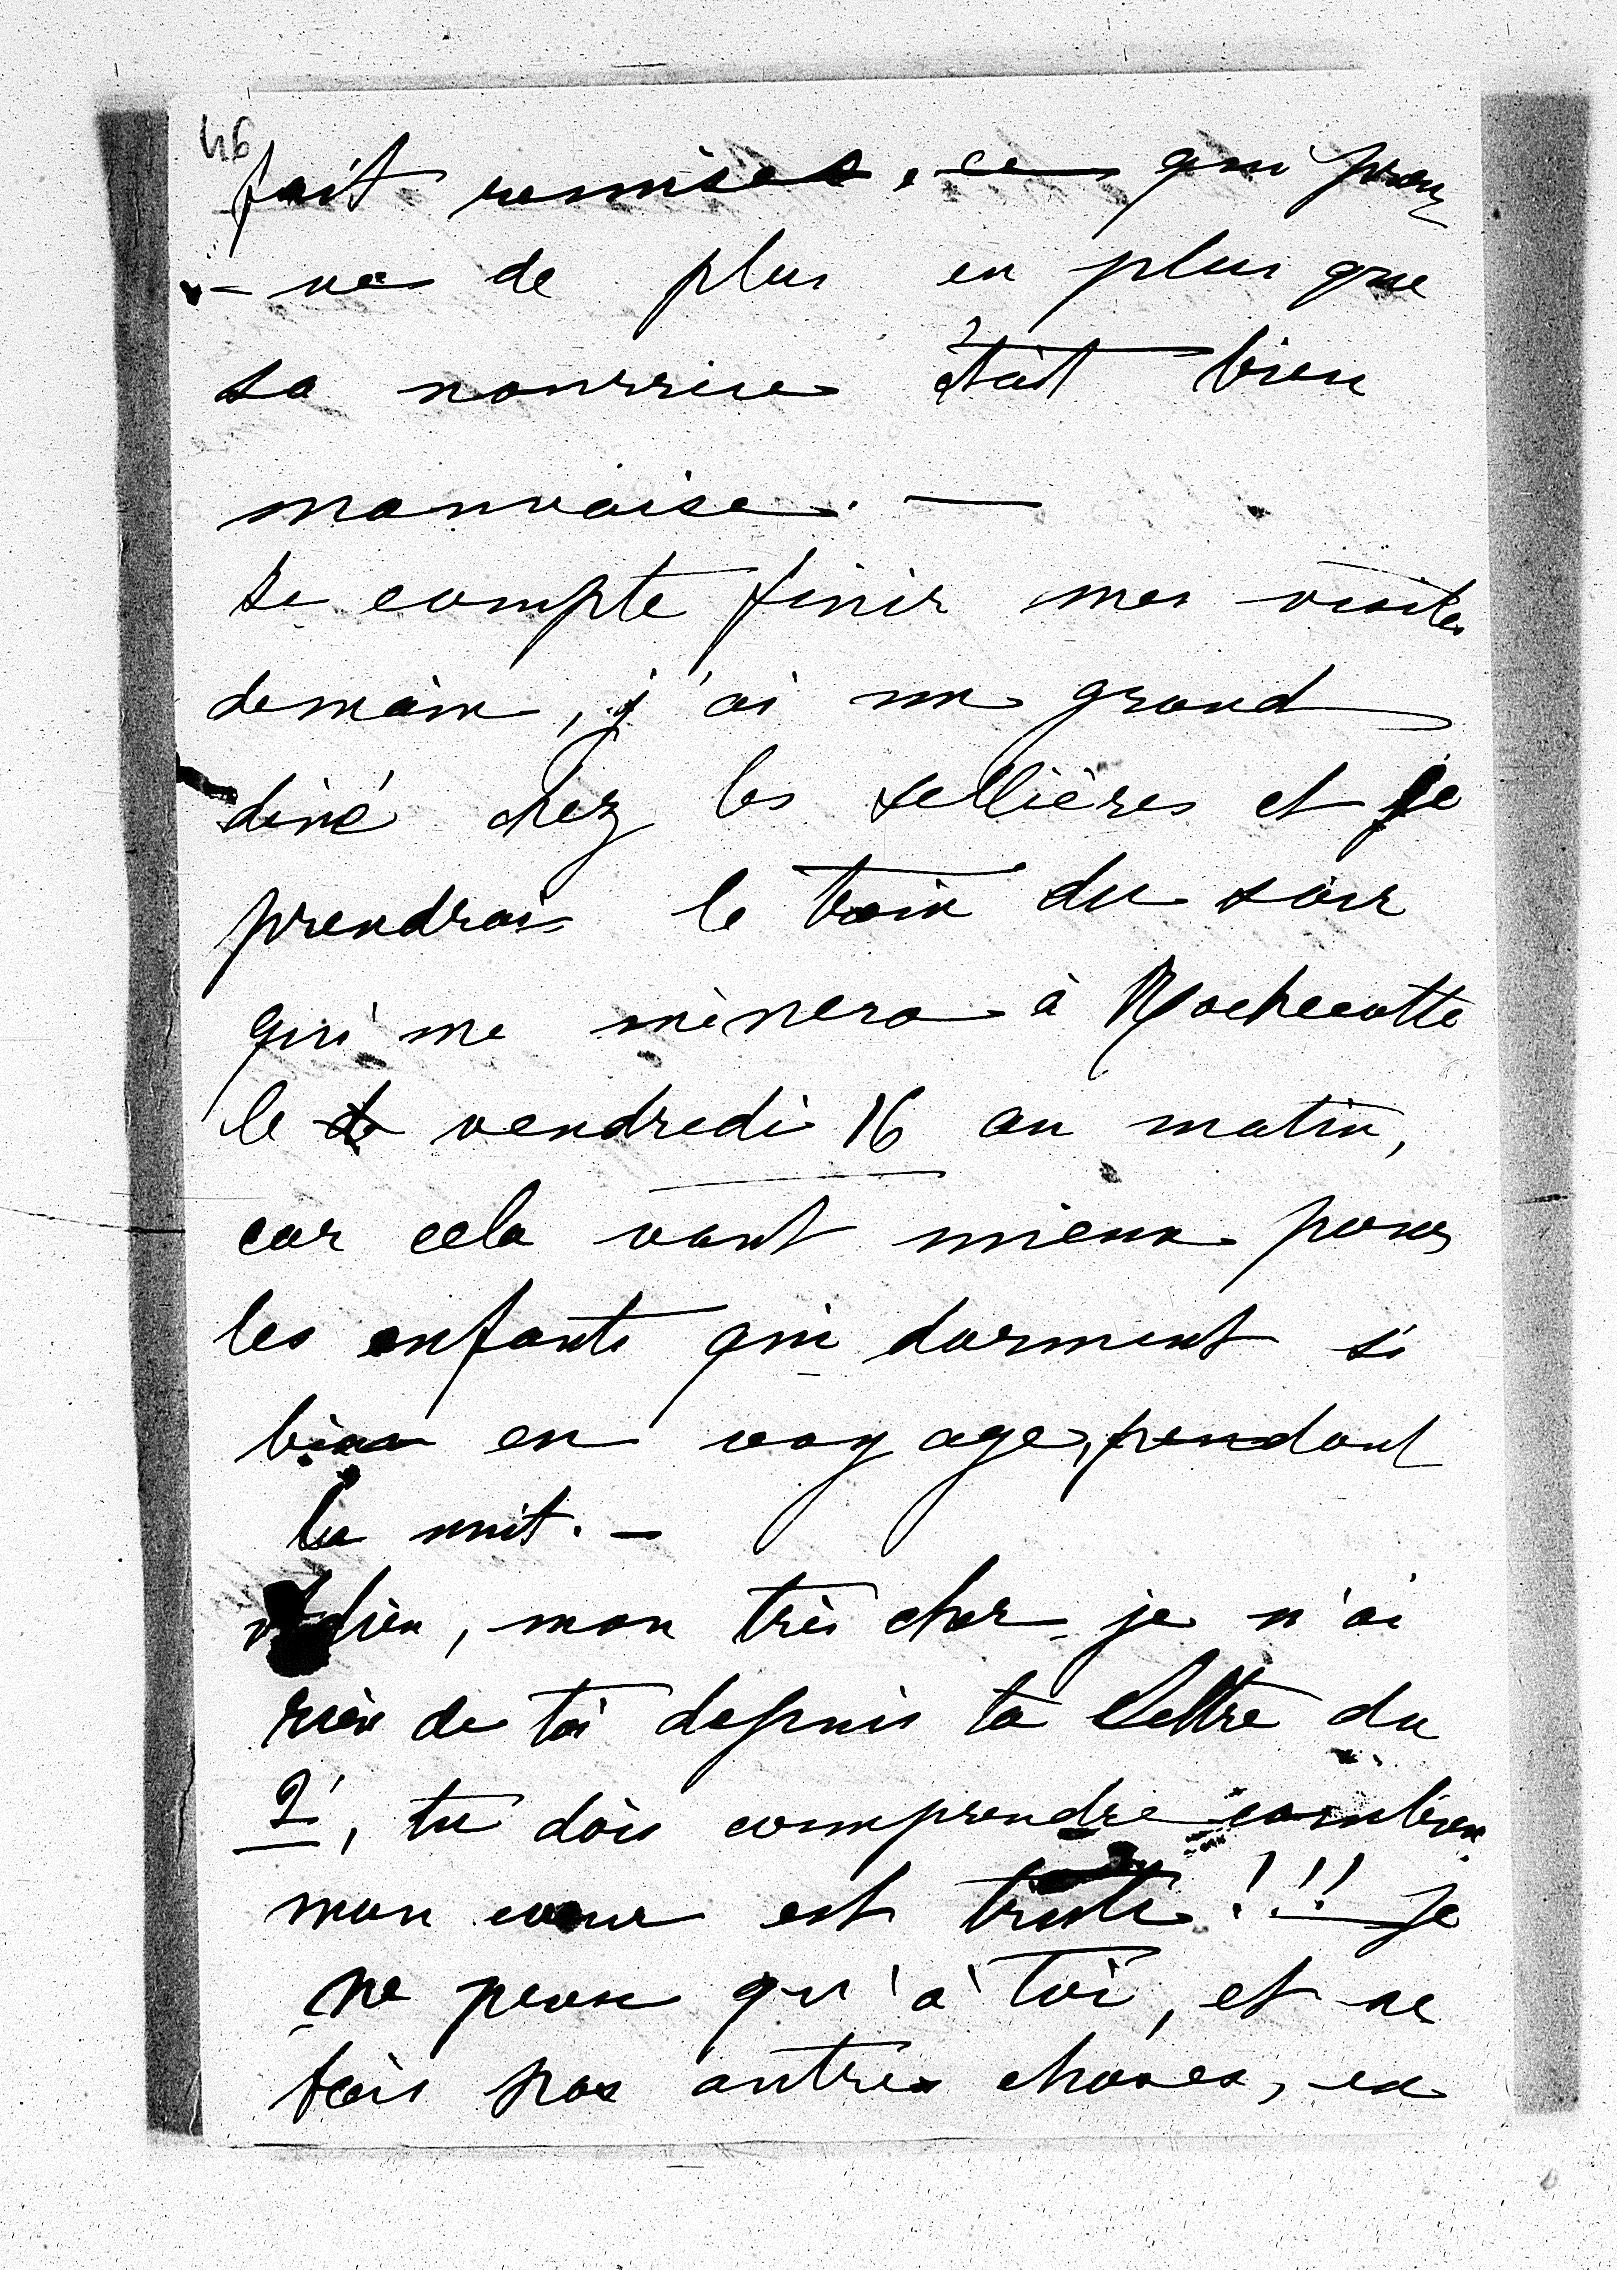 46
fait remises, ce qui prou
-ve de plus en plus que
sa nourrice était bien
mauvaise. —
Je compte finir mes visites
demain, j'ai un grand
diné chez les Sellières et je
prendrai le train du soir
qui me mènera à Rochecotte
le vendredi 16 au matin,
car cela vaut mieux pour
les enfants qui dorment si
bien en voyage, pendant
la nuit. —
Adieu, mon très cher, je n'ai
rien de toi depuis ta lettre du
2, tu dois comprendre combien
mon cœur est triste !!! Je
ne pense qu'à toi, et ne
fais pas autres choses, en